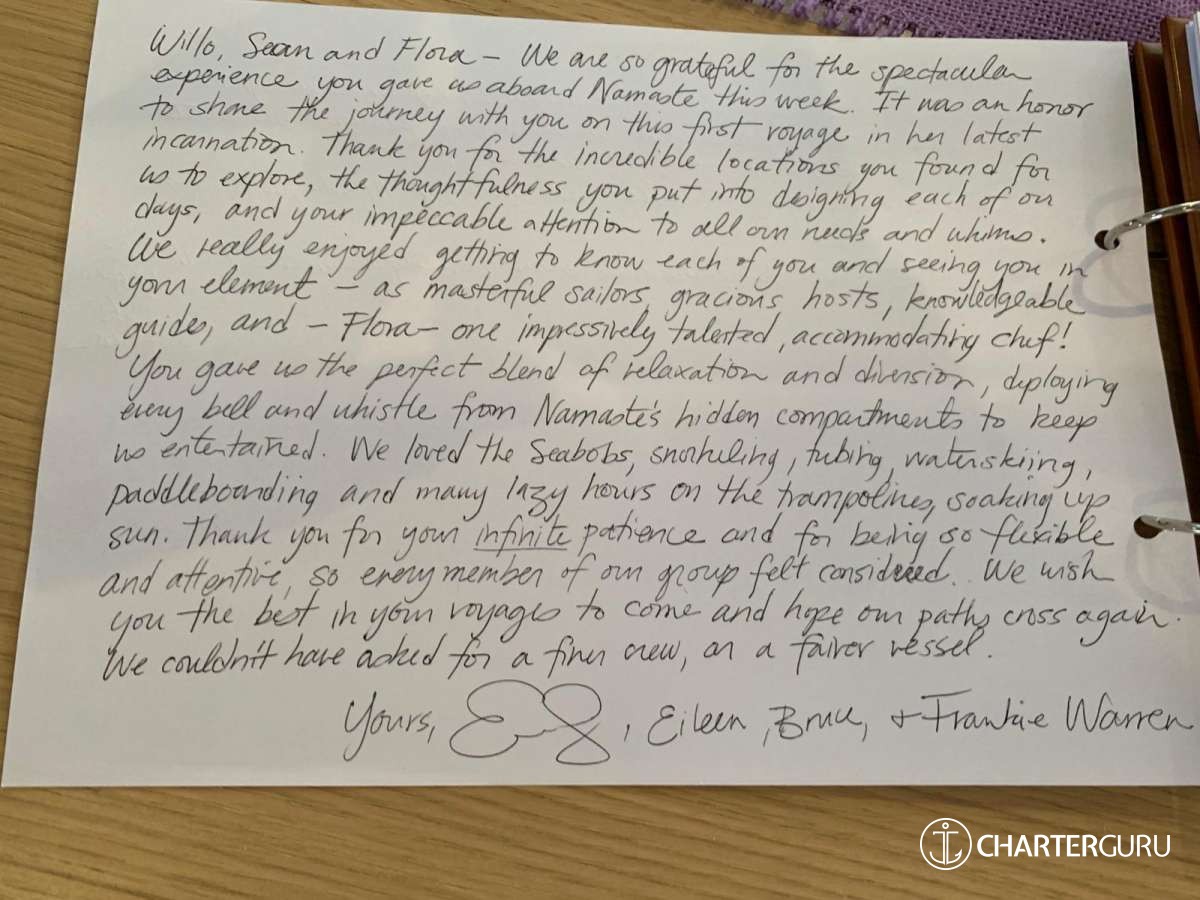 Willo, Sean and Flora – We are so grateful for the spectacular
experience you gave us aboard Namaste this week. It was an honor
to share the journey with you on this first voyage in her latest
incarnation. Thank you for the incredible locations you found for
us to explore, the thoughtfulness you put into designing each of our
days, and your impeccable attention to all our needs and whims.
We really enjoyed getting to know each of you and seeing you in
your element – as masterful sailors, gracious hosts, knowledgeable
guides, and – Flora – one impressively talented, accommodating chef!
You gave us the perfect blend of relaxation and diversion, deploying
every bell and whistle from Namaste's hidden compartments to keep
us entertained. We loved the Seabobs, snorkeling, tubing, waterskiing,
paddleboarding and many lazy hours on the trampolines, soaking up
sun. Thank you for your infinite patience and for being so flexible
and attentive, so every member of our group felt considered. We wish
you the best in your voyages to come and hope our paths cross again.
We couldn't have asked for a finer crew, or a fairer vessel.
Yours, , Eileen, Bruce, + Frankie Warren
CHARTERGURU